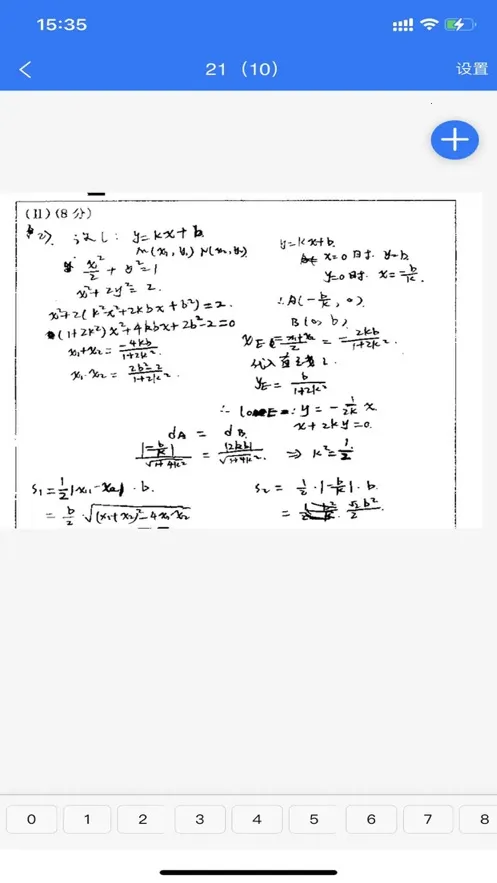 15:35
21 (10)
设置
(II)(8分)
(2) 设l: y=kx+b.
M(x₁, y₁) N(x₂, y₂)
x²/2 + y²=1
x²+2y²=2.
x²+2(k²x²+2kbx+b²)=2.
(1+2k²)x²+4kbx+2b²-2=0
x₁+x₂ = -4kb/1+2k².
x₁·x₂ = 2b²-2/1+2k².
y=kx+b.
x=0时. y=b
y=0时. x=-b/k.
∴A(-b/k, 0)
B(0, b)
x_E = x₁+x₂/2 = -2kb/1+2k².
代入直线l.
y_E = b/1+2k²
∴ l_OE: y = -1/2k x
x+2ky=0.
d_A = d_B
|-b/k|/√1+4k² = |2kb|/√1+4k² ⇒ k²=1/2
S₁=1/2|x₁-x₂|·b.
= b/2 √(x₁+x₂)²-4x₁x₂
S₂ = 1/2·|-b/k|·b.
= √2b²/2
0 1 2 3 4 5 6 7 8